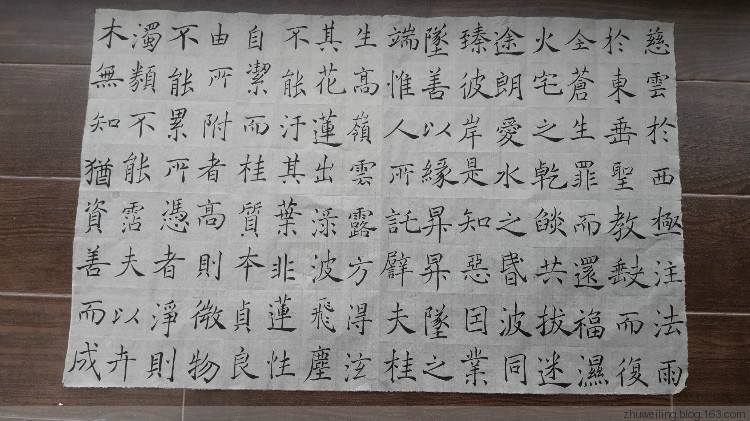 慈雲於西極注法雨
於東垂聖教缺而復
全蒼生罪而還福濕
火宅之乾燄共拔迷
途朗愛水之昏波同
臻彼岸是知惡因業
墜善以緣昇昇墜之
端惟人所託譬夫桂
生高嶺雲露方得泫
其花蓮出淥波飛塵
不能汙其葉非蓮性
自潔而桂質本貞良
由所附者高則微物
不能累所憑者淨則
濁類不能霑夫以卉
木無知猶資善而成
zhuweiling.blog.163.com